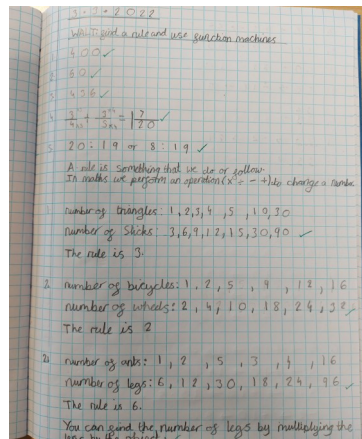 3.3.2022
WALT: find a rule and use function machines
1. 400 ✓
2. 60 ✓
3. 456 ✓
5. 20:19 or 8:19 ✓
A rule is something that we do or follow.
In maths we perform an operation (x ÷ - +) to change a numbe
number of triangles: 1, 2, 3, 4, 5, 10, 30
number of sticks: 3, 6, 9, 12, 15, 30, 90 ✓
The rule is 3.
2. number of bicycles: 1, 2, 5, 9, 12, 16
number of wheels: 2, 4, 10, 18, 24, 32 ✓
The rule is 2
number of ants: 1, 2, 5, 3, 4, 16
number of legs: 6, 12, 30, 18, 24, 96 ✓
The rule is 6.
You can find the number of legs by multiplying the